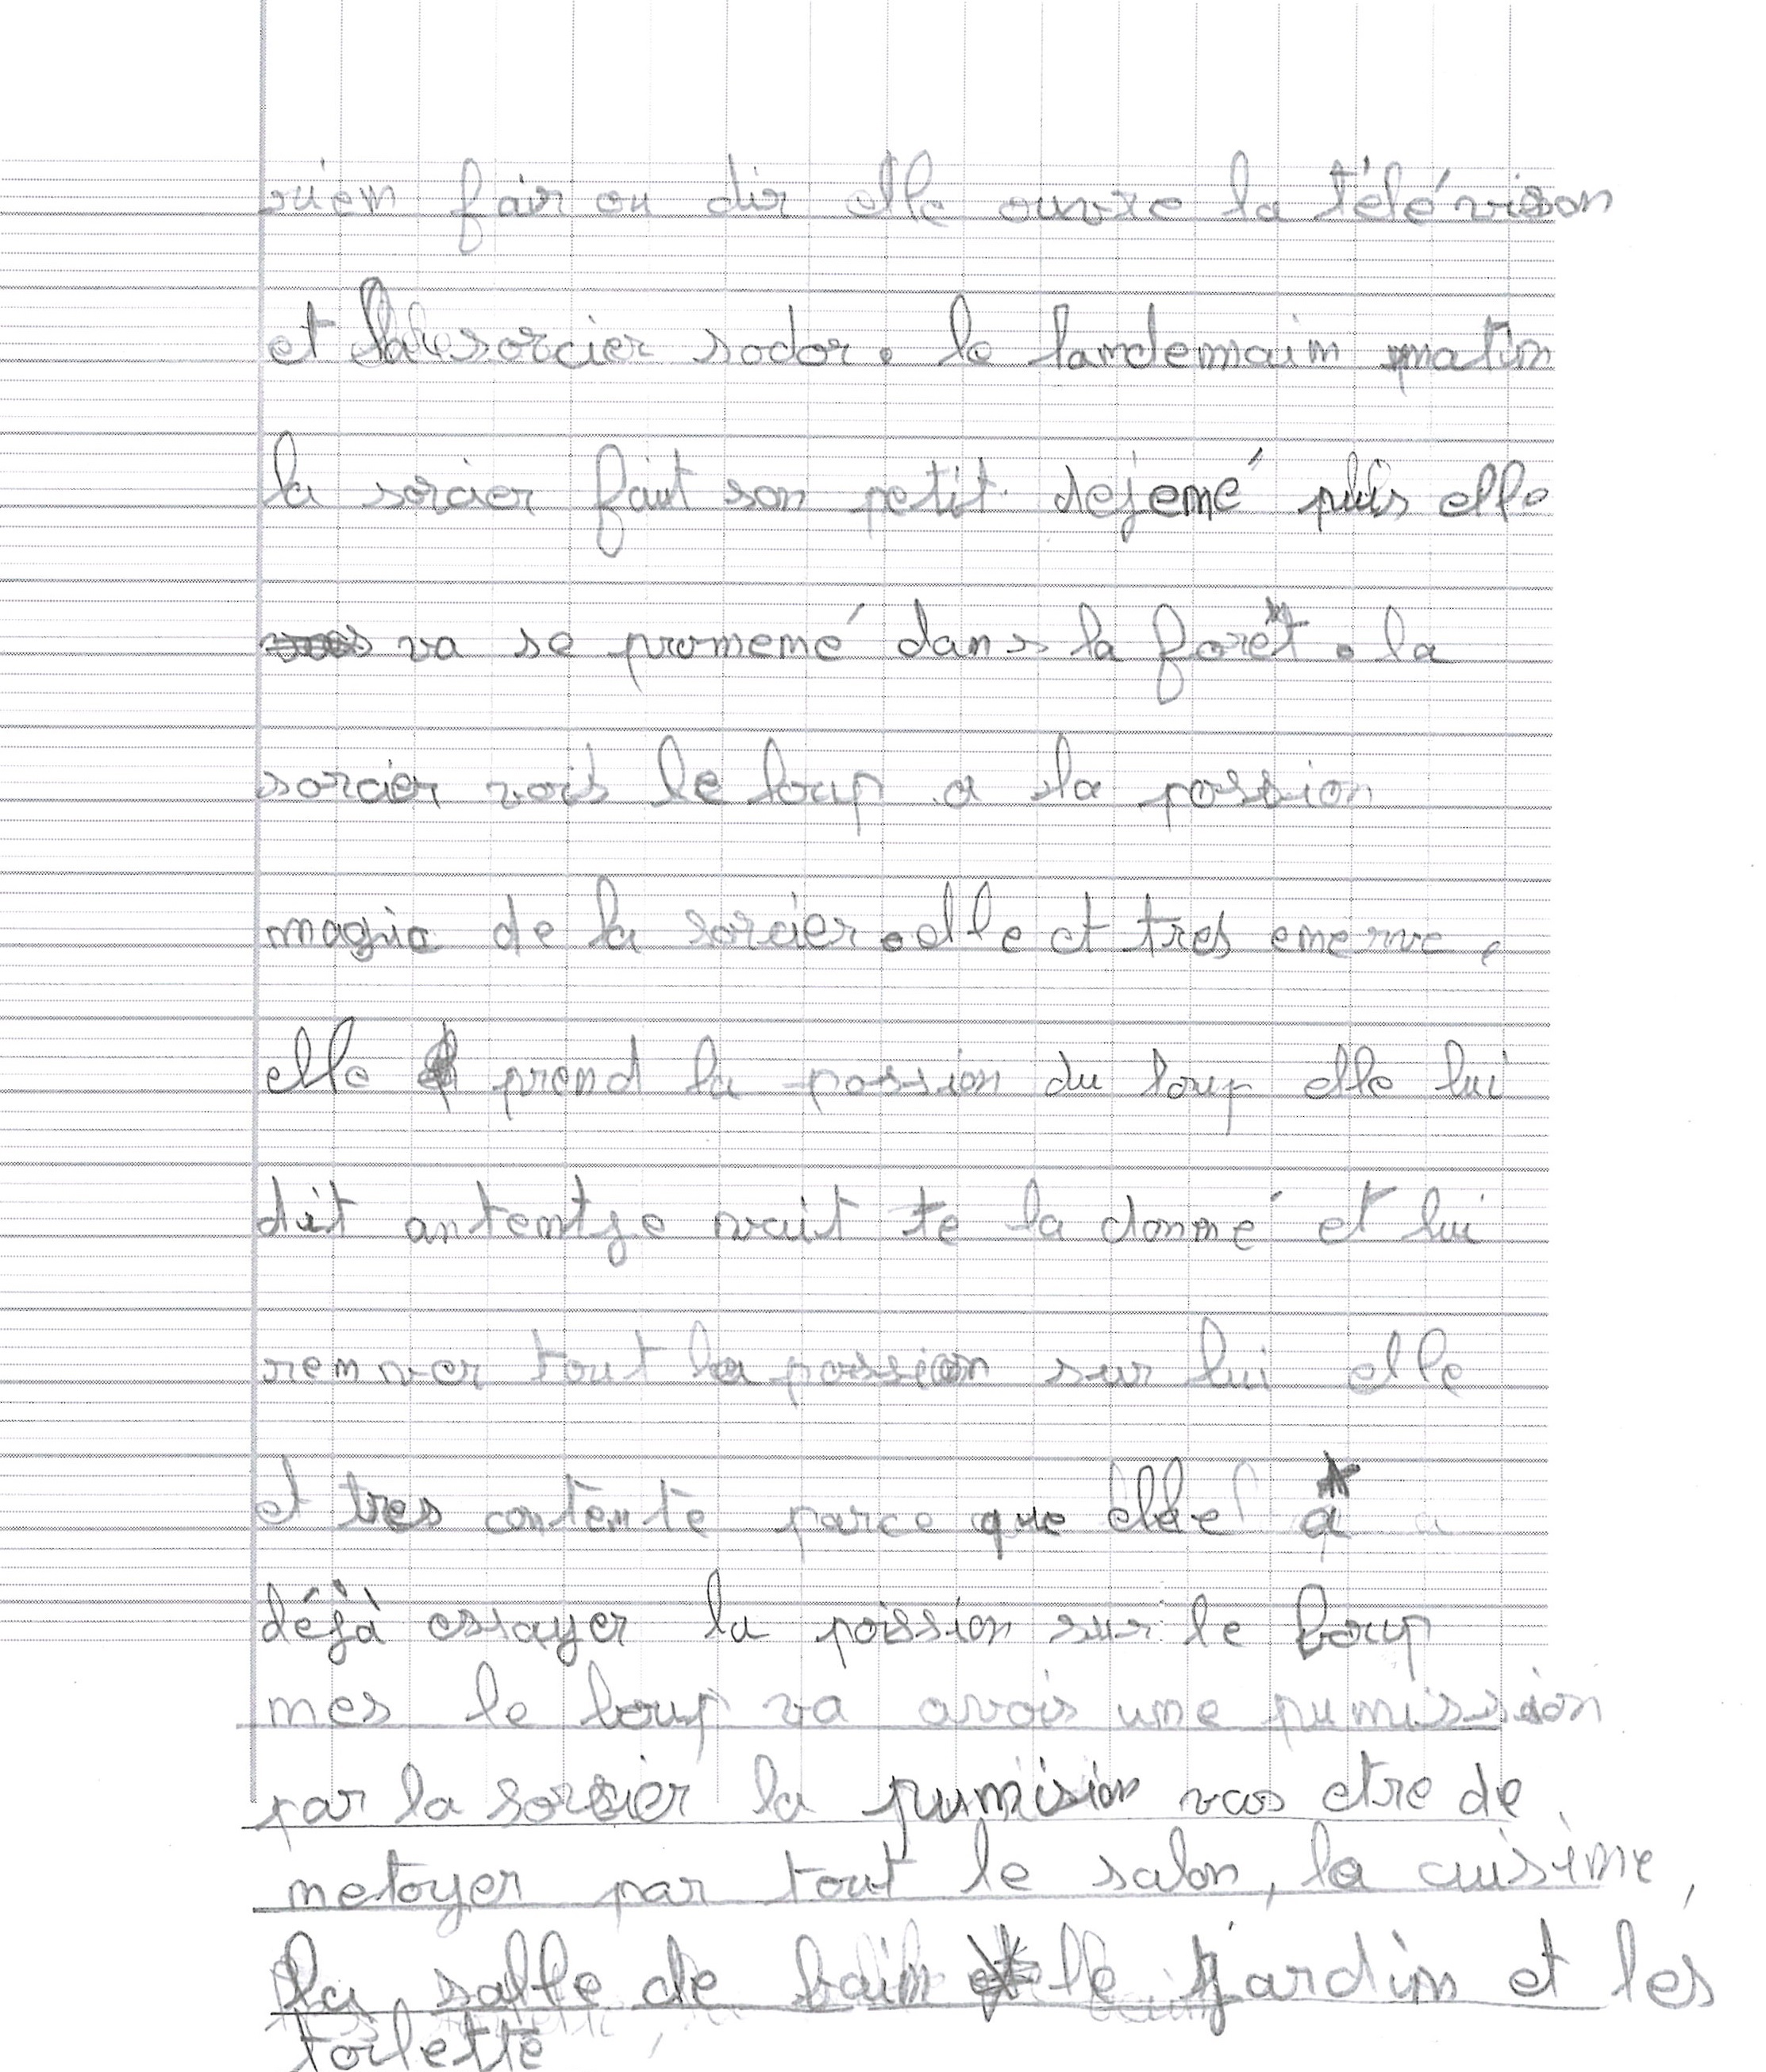 rien fair ou dir elle ouvre la télévison
et la sorcier sodor. le landemain matin
la sorcier fait son petit dejené puis elle
va se promené dans la forêt. la
sorcier vois le loup a la possion
magie de la sorcier. elle et tres enerve,
elle prend la possion du loup elle lui
dit antentje vait te la donné et lui
renver tout la possion sur lui elle
et tres contente parce que elle a
déjà essayer la poission sur le loup
mes le loup va avois une punission
par la sorcier la punision vas etre de
netoyer par tout le salon, la cuisine,
la salle de bain le jardin et les
toilette